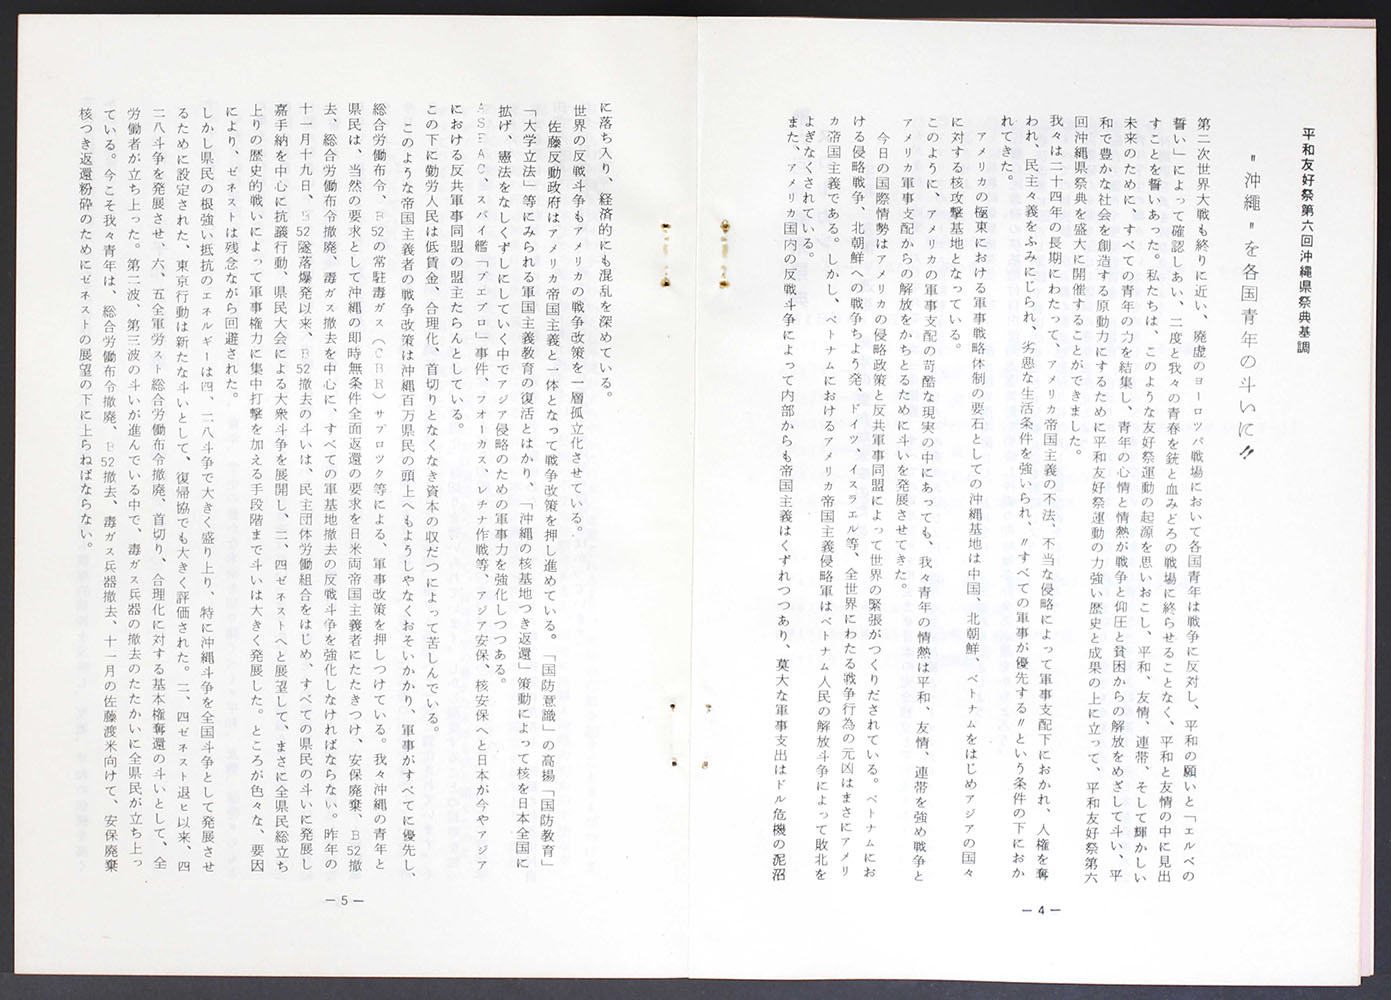 平和友好祭第六回沖縄県祭典基調
〃沖縄〃を各国青年の斗いに〃
第二次世界大戦も終りに近い、廃虚のヨーロツパ戦場において各国青年は戦争に反対し、平和の願いと「エルベの
誓い」によって確認しあい、二度と我々の青春を銃と血みどろの戦場に終らせることなく、平和と友情の中に見出
すことを誓いあった。私たちは、このような友好祭運動の起源を思いおこし、平和、友情、連帯、そして輝かしい
未来のために、すべての青年の力を結集し、青年の心情と情熱が戦争と仰圧と貧困からの解放をめざして斗い、平
和で豊かな社会を創造する原動力にするために平和友好祭運動の力強い歴史と成果の上に立って、平和友好祭第六
回沖縄県祭典を盛大に開催することができました。
我々は二十四年の長期にわたって、アメリカ帝国主義の不法、不当な侵略によって軍事支配下におかれ、人権を奪
われ、民主々義をふみにじられ、劣悪な生活条件を強いられ、〃すべての軍事が優先する〃という条件の下におか
れてきた。
アメリカの極東における軍事戦略体制の要石としての沖縄基地は中国、北朝鮮、ベトナムをはじめアジアの国々
に対する核攻撃基地となっている。
このように、アメリカの軍事支配の苛酷な現実の中にあっても、我々青年の情熱は平和、友情、連帯を強め戦争と
アメリカ軍事支配からの解放をかちとるために斗いを発展させてきた。
今日の国際情勢はアメリカの侵略政策と反共軍事同盟によって世界の緊張がつくりだされている。ベトナムにお
ける侵略戦争、北朝鮮への戦争ちよう発、ドイツ、イスラエル等、全世界にわたる戦争行為の元凶はまさにアメリ
カ帝国主義である。しかし、ベトナムにおけるアメリカ帝国主義侵略軍はベトナム人民の解放斗争によって敗北を
よぎなくされている。
また、アメリカ国内の反戦斗争によって内部からも帝国主義はくずれつつあり、莫大な軍事支出はドル危機の泥沼
— 4 —
に落ち入り、経済的にも混乱を深めている。
世界の反戦斗争もアメリカの戦争改策を一層孤立化させている。
佐藤反動政府はアメリカ帝国主義と一体となって戦争改策を押し進めている。「国防意識」の高揚「国防教育」
「大学立法」等にみられる軍国主義教育の復活とはかり、「沖縄の核基地つき返還」策動によって核を日本全国に
拡げ、憲法をなしくずしにしていく中でアジア侵略のための軍事力を強化しつつある。
ASEAC、スパイ艦「プエブロ」事件、フォーカス、レチナ作戦等、アジア安保、核安保へと日本が今やアジア
における反共軍事同盟の盟主たらんとしている。
この下に勤労人民は低賃金、合理化、首切りとなくなき資本の収だつによって苦しんでいる。
このような帝国主義者の戦争改策は沖縄百万県民の頭上へもようしやなくおそいかかり、軍事がすべてに優先し、
総合労働布令、B52の常駐毒ガス(CBR)サブロツク等による、軍事改策を押しつけている。我々沖縄の青年と
県民は、当然の要求として沖縄の即時無条件全面返還の要求を日米両帝国主義者にたたきつけ、安保廃棄、B52撤
去、総合労働布令撤廃、毒ガス撤去を中心に、すべての軍基地撤去の反戦斗争を強化しなければならない。昨年の
十一月十九日、B52墜落爆発以来、B52撤去の斗いは、民主団体労働組合をはじめ、すべての県民の斗いに発展し
嘉手納を中心に抗議行動、県民大会による大衆斗争を展開し、二、四ゼネストへと展望して、まさに全県民総立ち
上りの歴史的戦いによって軍事権力に集中打撃を加える手段階まで斗いは大きく発展した。ところが色々な、要因
により、ゼネストは残念ながら回避された。
しかし県民の根強い抵抗のエネルギーは四、二八斗争で大きく盛り上り、特に沖縄斗争を全国斗争として発展させ
るために設定された、東京行動は新たな斗いとして、復帰協でも大きく評価された。二、四ゼネスト退ヒ以来、四
二八斗争を発展させ、六、五全軍労スト総合労働布令撤廃、首切り、合理化に対する基本権奪還の斗いとして、全
労働者が立ち上った。第二波、第三波の斗いが進んでいる中で、毒ガス兵器の撤去のたたかいに全県民が立ち上っ
ている。今こそ我々青年は、総合労働布令撤廃、B52撤去、毒ガス兵器撤去、十一月の佐藤渡米向けて、安保廃棄
核つき返還粉砕のためにゼネストの展望の下に上らねばならない。
— 5 —